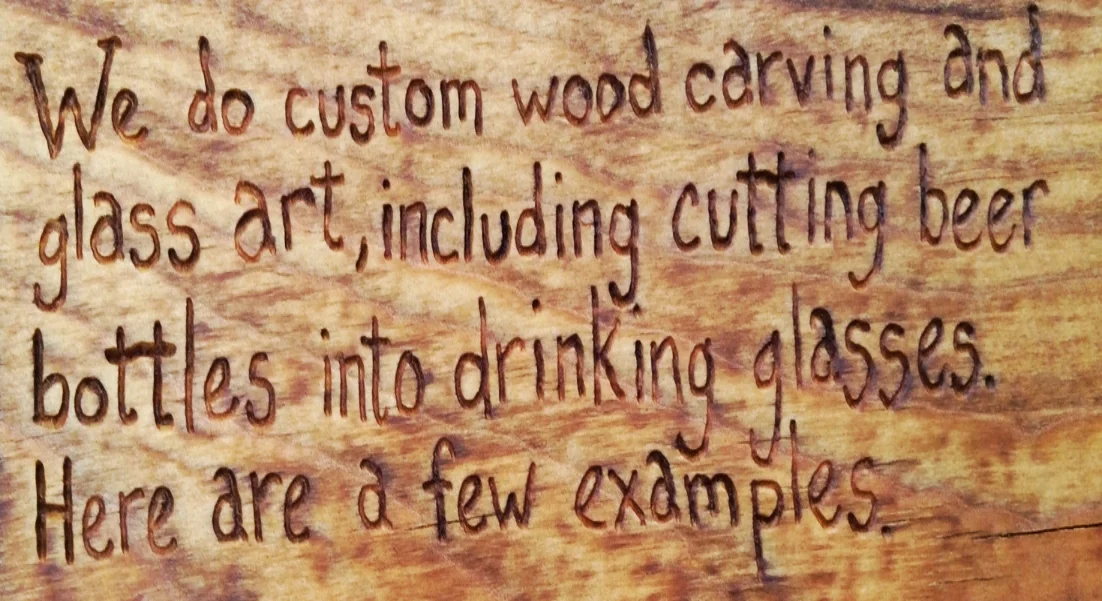 We do custom wood carving and
glass art, including cutting beer
bottles into drinking glasses.
Here are a few examples.